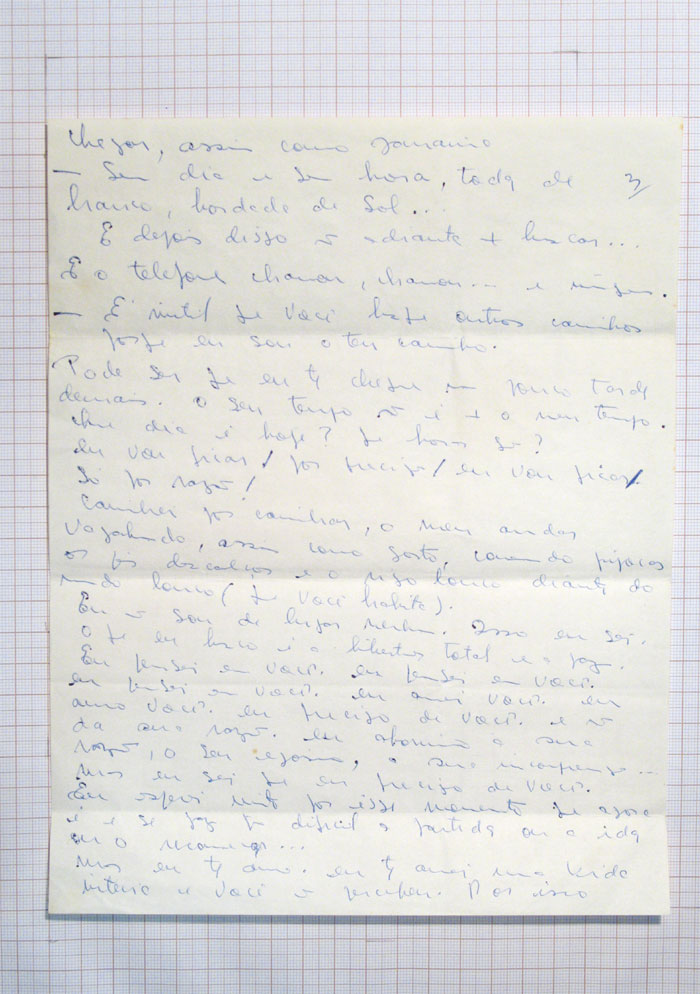 chegar, assim como
– Sem dia e sem hora, toda de 3/
branco, bordada de Sol...
E depois disso ñ adiante + buscar...
E o telefone chamar, chamar... e
– É inutil q você busque outros caminhos
porque eu sou o teu caminho.
Pode ser q eu te chegue um pouco tarde
demais. O seu tempo ñ é + o meu tempo.
Que dia é hoje? Q horas são?
eu vou ficar / por precisão / eu vou ficar /
só por razão /
Caminhar por caminhar, o meu andar
Vagabundo, assim como gosto, comendo pipocas
os pés descalços e o riso louco diante do
mundo louco (q você habita).
Eu ñ sou de lugar nenhum. Isso eu sei.
O q eu busco é a libertas total e a
Eu pensei em você. eu pensei em você.
eu pensei em você. eu amei você. eu
amo você. eu preciso de você. e ñ
da sua razão. eu abomino a sua
razão, o seu egoismo, a sua
mas eu sei q eu preciso de você.
Eu esperei muito por esse momento q agora
é e se faz tão dificil a partida ou a ida
ou o
mas eu te amo. eu te amei uma vida
inteira e você ñ percebeu. Por isso